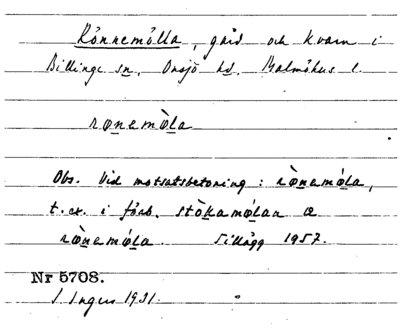 Rönnemölla, gård och kvarn i
Billinge sn, Onsjö hd, Malmöhus l.
rœnemö̀la
Obs. Vid motsatsbetoning: rœ̀nemö́la,
t.ex. i förb. stökamö́lan œ
rœ̀nemö́la. Tillägg 1957.
Nr 5708.
I. Ingers 1931.